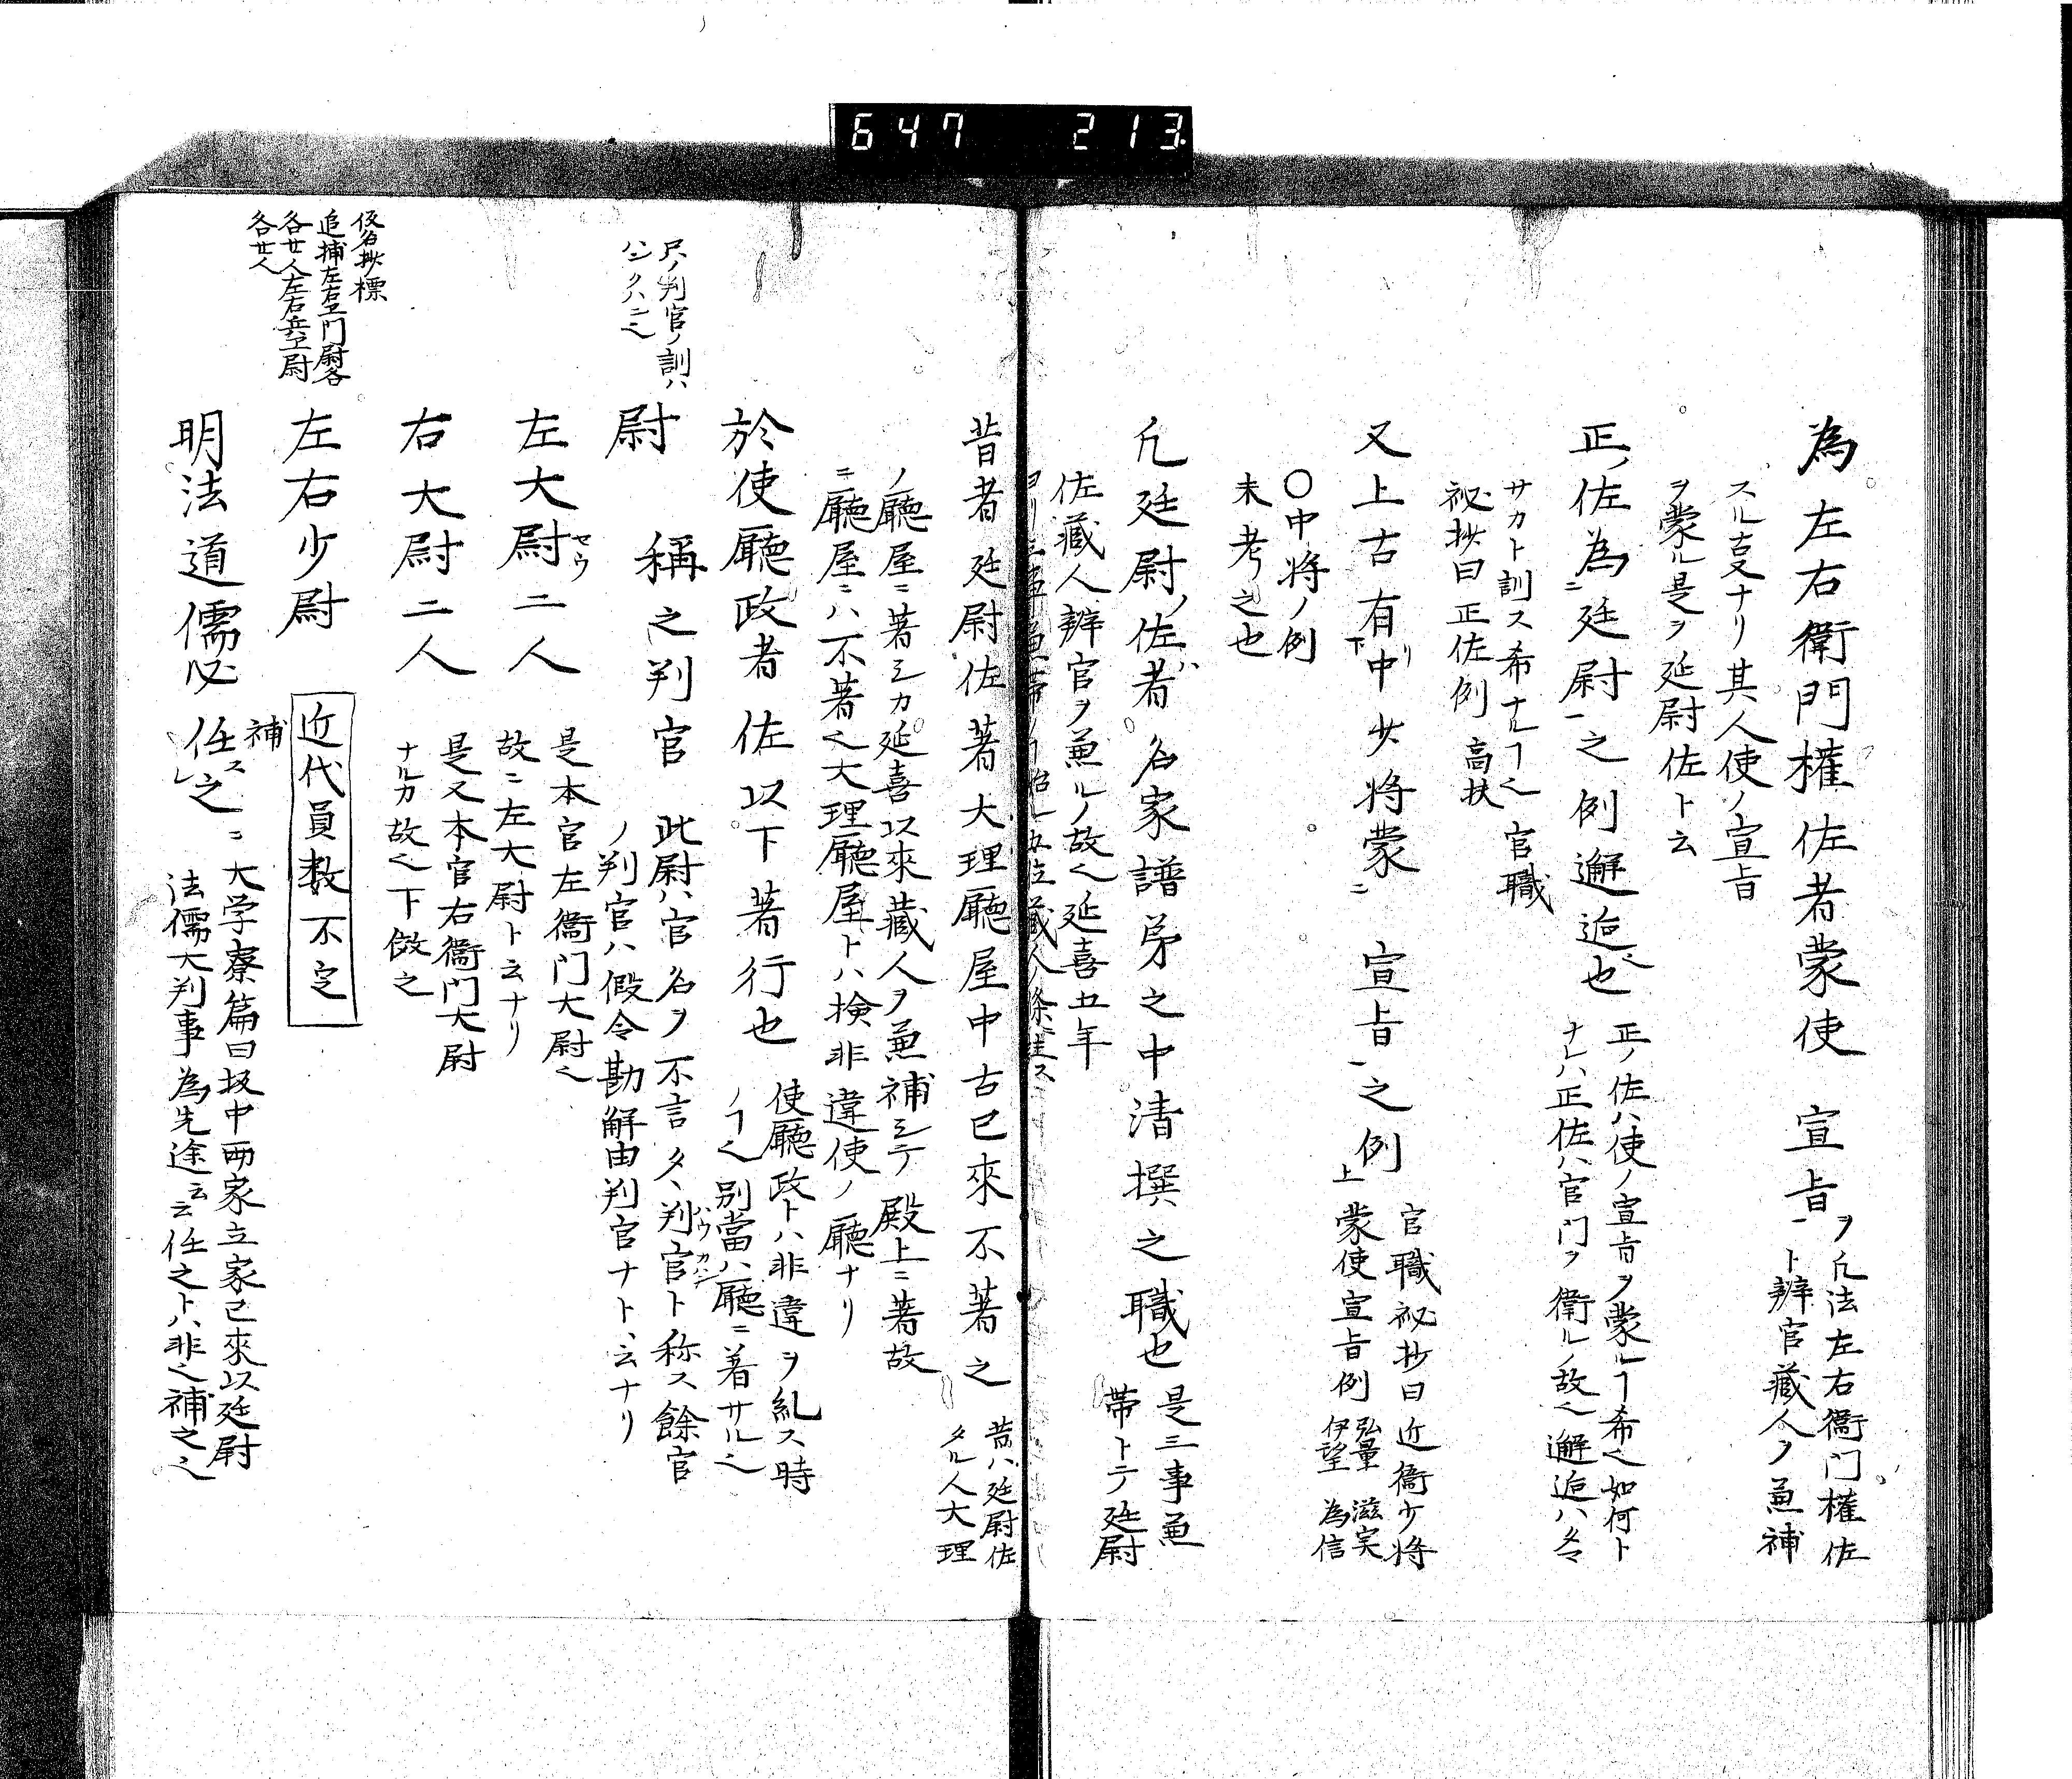 647 213
為左右衛門權佐者蒙使 宣旨
ヲ凢法左右衞門權佐
ト辨官藏人ヲ兼補
スル古叓ナリ其人使ノ宣旨
ヲ蒙ル是ヲ廷尉佐ト云
正ノ佐為廷尉之例邂逅也
正ノ佐ハ使ノ宣旨ヲ蒙ルヿ希也如何ト
ナレハ正佐ハ官門ヲ衛ルノ故也邂逅ハタマ
サカト訓ス希ナルヿ也官職
祕抄曰正佐例 高扶
又上古有中少将蒙 宣旨之例
官職祕抄曰近衞少将
蒙使宣旨例 弘量 滋実
伊望 為信
〇中将ノ例
未考之也
凢廷尉ノ佐者名家譜第之中清撰之職也
是三事兼
帯トテ廷尉
佐藏人辨官ヲ兼ルノ故也延喜五年
昔者廷尉佐著大理廳屋中古已來不著之
昔ハ廷尉佐
タル人大理
ノ廳屋ニ著シカ延喜以來藏人ヲ兼補シテ殿上ニ著故
ニ廳屋ニハ不著也大理廳屋トハ検非違使ノ廳ナリ
於使廳政者佐以下著行也
使廳政トハ非違ヲ糺ス時
ノヿ也別當ハ廳ニ著サル也
尺ノ判官ノ訓ハ
尉 稱之判官
此尉ハ官名ヲ不言タヽ判官ト称ス餘官
ノ判官ハ假令勘解由判官ナトヽ云ナリ
左大尉二人
是本官左衞门大尉也
故ニ左大尉ト云ナリ
右大尉二人
是又本官右衞门大尉
ナルカ故也下傚之
追捕左右卫門尉各
各廿人左右兵卫尉
各廿人
左右少尉
近代員数不定
明法道儒必任之
補
大学寮篇曰坂中両家立家已來以廷尉
法儒大判事為先途云云任之トハ非也補之也